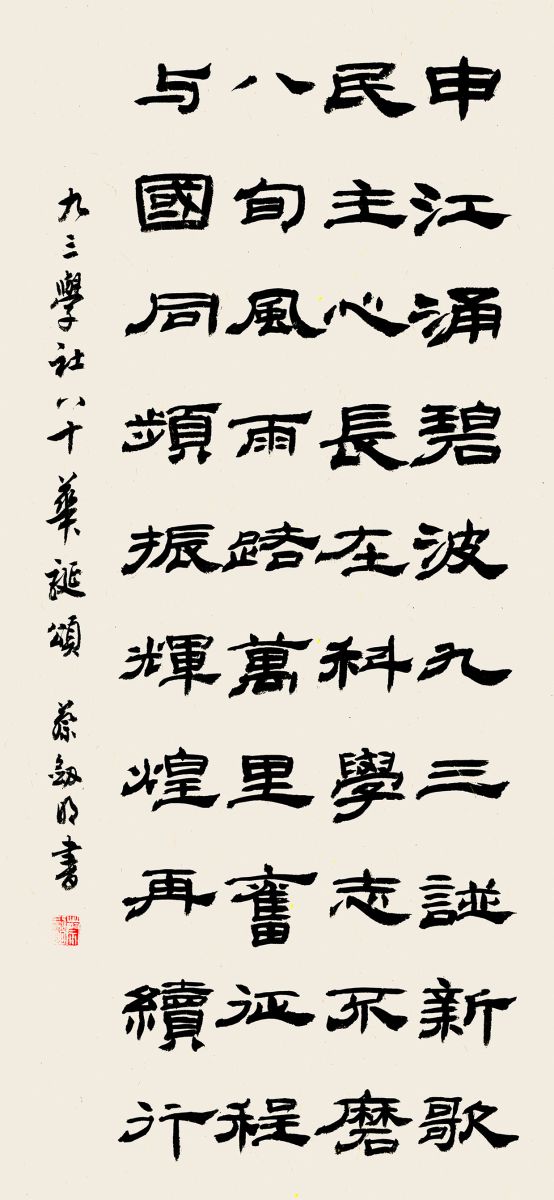 申江涌碧波九三誕新歌
民主心長在科學志不磨
八旬風雨路萬里奮征程
与國同頻振輝煌再續行
九三學社八十華誕頌 蔡劍明書